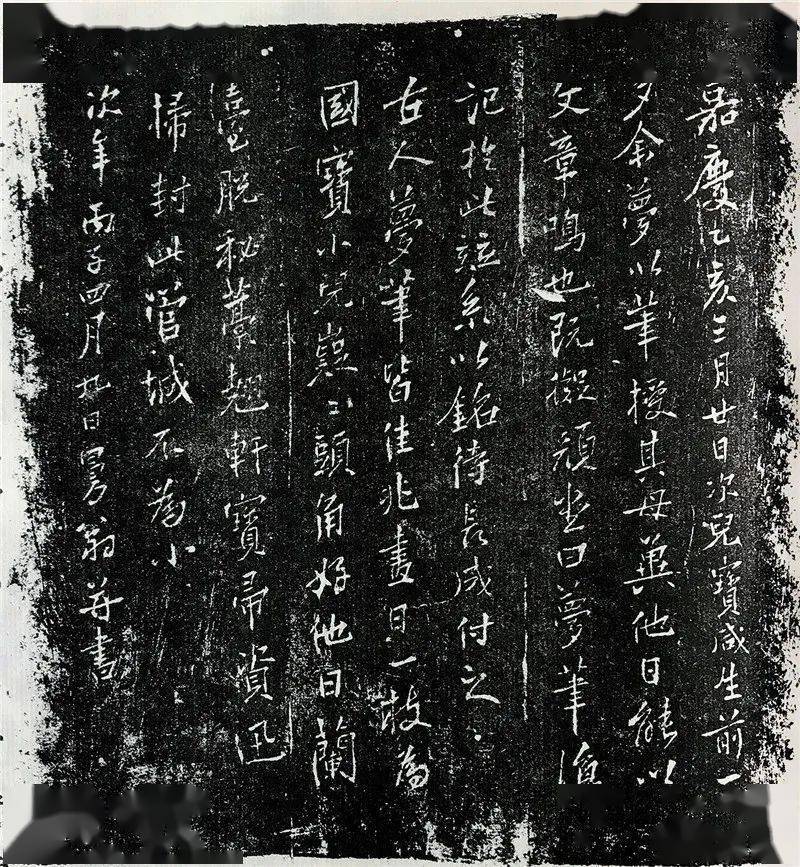 嘉慶乙亥三月廿日次兒寶咸生前一
夕余夢以筆授其母冀他日能以
文章鳴也既擬顏坐曰夢筆
記於此並系以銘待長成付之
古人夢筆皆佳兆畫日一枝為
國寶小兒嶷〻頭角好他日蘭
臺脫秘藁翹軒寶帚資迅
掃封此管城不為小
次年丙子四月九日翁并書